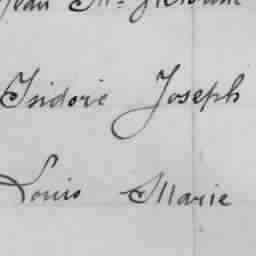 Jean M.
Isidore Joseph
Louis Marie